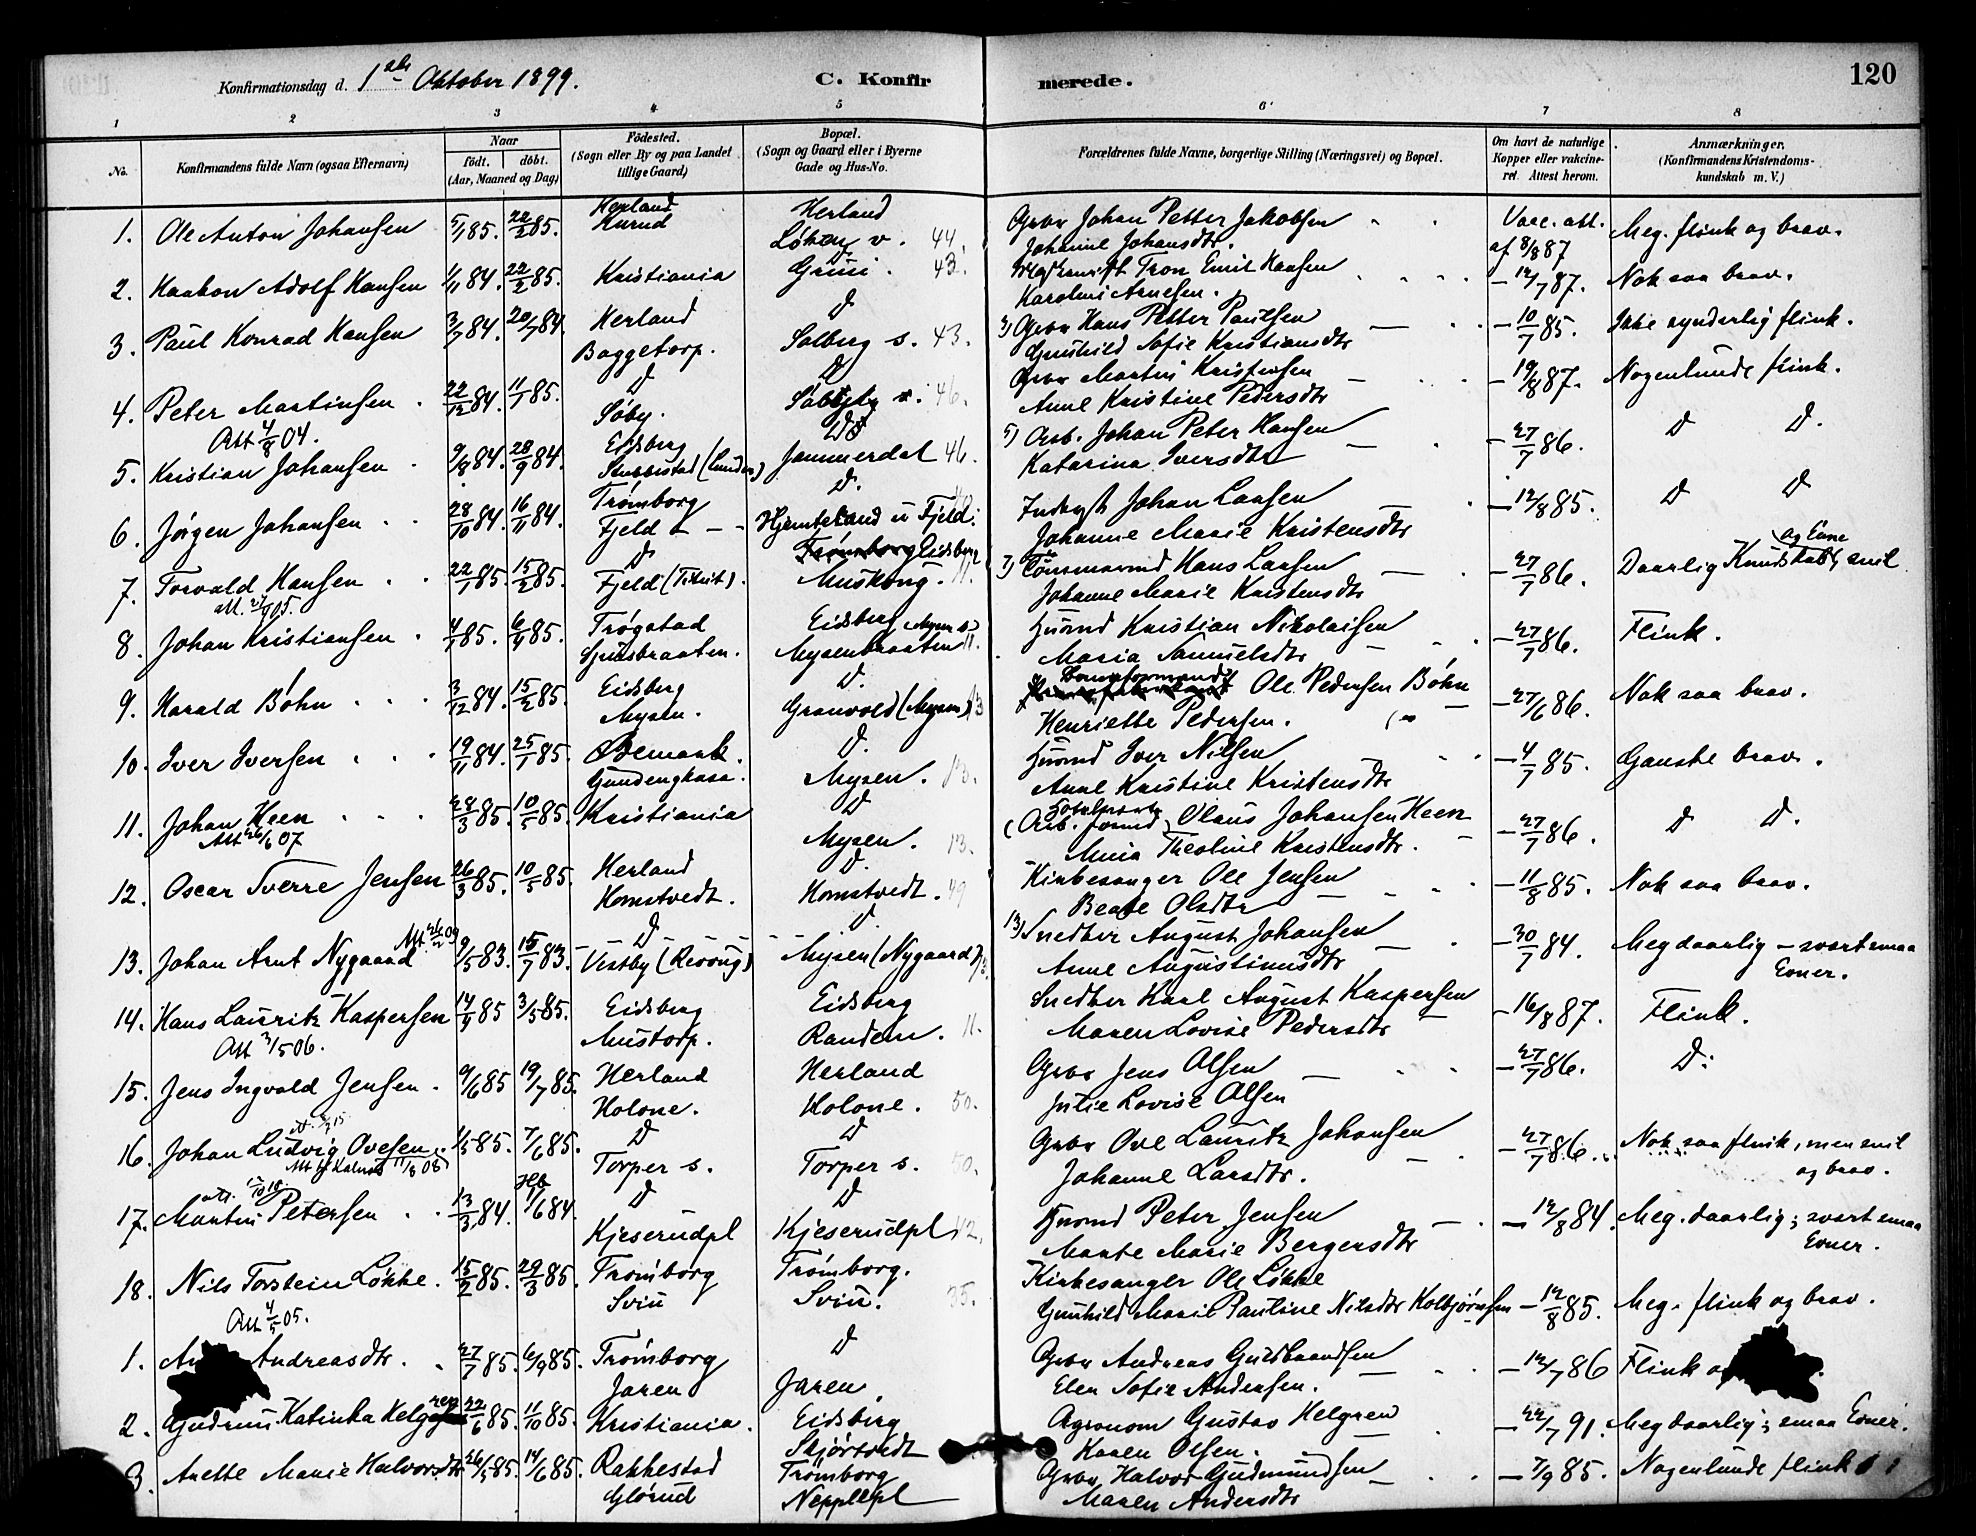 Konfirmationsdag d. 1ste Oktober 1899. C. Konfirmerede. 120
1 2 3 4 5 6 7 8
No. Konfirmandens fulde Navn (ogsaa Efternavn) Naar født. døbt. (Aar, Maaned og Dag) Fødested. (Sogn eller By og paa Landet tillige Gaard) Bopæl. (Sogn og Gaard eller i Byerne Gade og Hus-No. Forældrenes fulde Navne, borgerlige Stilling (Næringsvei) og Bopæl. Om havt de naturlige Kopper eller vakcineret. Attest herom. Anmærkninger. (Konfirmandens Kristendomskundskab m. V.)
1. Ole Anton Johansen 5/1 85. 22/2 85. Herland Herland Grbr Johan Petter Jakobsen Vacc. att. Meg. flink og brav.
Løken v. 44. Johanne Johansdtr. af 8/8 87
2. Haakon Adolf Hansen 1/11 84. 22/2 85. Kristiania D 43. Tron Emil Hansen – 12/7 87. Nok saa brav.
Karoline Arnesen.
3. Paul Konrad Hansen 3/7 84. 20/7 84. Herland D Grbr Hans Petter Paulsen – 10/7 85. Ikke synderlig flink.
Baggetorp. Salberg s. 43. Gunhild Sofie Kristiansdtr
4. Peter Martinsen 22/12 84. 11/1 85. D D Grbr Martin Kristensen – 19/8 87. Nogenlunde flink.
Att 4/8 04. Søby. 46. Anne Kristine Pedersdtr
5. Kristian Johansen 9/8 84. 28/9 84. Eidsberg D 5) Arb. Johan Peter Hansen – 27/7 86. D D.
Jammerdal 46. Katarina Iversdtr
6. Jørgen Johansen 28/10 84. 16/11 84. Trømborg D. Johan Larsen – 12/8 85. D D
Fjeld Fjeld Johanne Marie Kristensdtr
7. Torvald Hansen 22/1 85. 15/2 85. D Trømborg Eidsberg 7) Hans Larsen – 27/7 86. Daarlig Kundskab og Evne, snil
Fjeld Muskong. 11. Johanne Marie Kristensdtr
8. Johan Kristiansen 4/1 85. 6/4 85. Trøgstad Eidsberg Husmd Kristian Nikolaisen – 27/7 86. Flink.
Mysenbraaten 11. Maria Samuelsdtr
9. Harald Bøhn 3/12 84. 15/2 85. Eidsberg D. Ole Pedersen Bøhn – 27/6 86. Nok saa brav.
Mysen. Granvold (Mysen) 13 Henriette Pedersen.
10. Iver Iversen 19/11 84. 25/1 85. Ødemark. D. Husmd Iver Nilsen – 4/7 85. Ganske brav.
Mysen. 13. Anne Kristine Kristensdtr
11. Johan Heen 28/3 85. 10/5 85. Kristiania D Olaus Johansen Heen – 27/7 86. D D.
Att 26/6 07 Mysen. 13. Theoline Kristensdtr.
12. Oscar Sverre Jensen 26/3 85. 10/5 85. Herland D. Kirkesanger Ole Jensen – 11/8 85. Nok saa brav.
Homstvedt. Homstvedt. 49 Beate Olsdtr
13. Johan Arnt Nygaard 9/5 83. 15/7 83. D D. 13) Snedker August Johansen – 30/7 84. Meg daarlig – svært smaa
Vestby Mysen (Nygaard) Anne Augustinusdtr Evner.
14. Hans Lauritz Kaspersen 14/4 85 3/5 85. Eidsberg Eidsberg Snedker Karl August Kaspersen – 16/8 87. Flink.
Att 3/5 06. Mustorp. Randem. 11. Maren Lovise Pedersdtr
15. Jens Ingvald Jensen 9/6 85 19/7 85. Herland Herland Grbr Jens Olsen – 27/7 86. D.
Holone. Holone. 50. Julie Lovise Olsen
16. Johan Ludvig Ovesen 1/5 85. 7/6 85. D D Grbr Ove Lauritz Johansen – 27/7 86. Nok saa flink, men snil
Torper s. Torper s. 50. Johanne Larsdtr. og brav.
17. Martin Petersen 13/3 84. Hb 1/6 84. D D Husmd Peter Jensen – 12/8 84. Meg. daarlig; svært smaa
Kjeserudpl Kjeserudpl 42. Marte Marie Bergersdtr Evner.
18. Nils Torstein Løkke. 15/2 85. 29/3 85. Trømborg Trømborg. Kirkesanger Ole Løkke
Att 4/5 05. Sviu Sviu. 35. Gunhild Marie Pauline Nilsdtr Kolbjørnsen – 12/8 85. Meg. flink og brav.
1. Andreasdtr. 27/7 85. 6/9 85. Trømborg D Grbr Andreas Guldbrandsen – 12/7 86 Flink
Jaren Jaren Elen Sofie Andersen.
2. Gudrun Katinka 22/6 85. 11/10 85. Kristiania. Eidsberg Agronom Gustav Helgren – 22/7 91. Meg daarlig; smaa Evner.
Skjørtvedt Karen Olsen.
3. Anette Marie Halvorsdtr 26/5 85. 14/6 85. Rakkestad Trømborg Grbr Halvor Gudmundsen – 7/9 85. Nogenlunde flink
Glørud Nepplepl Maren Andersdtr